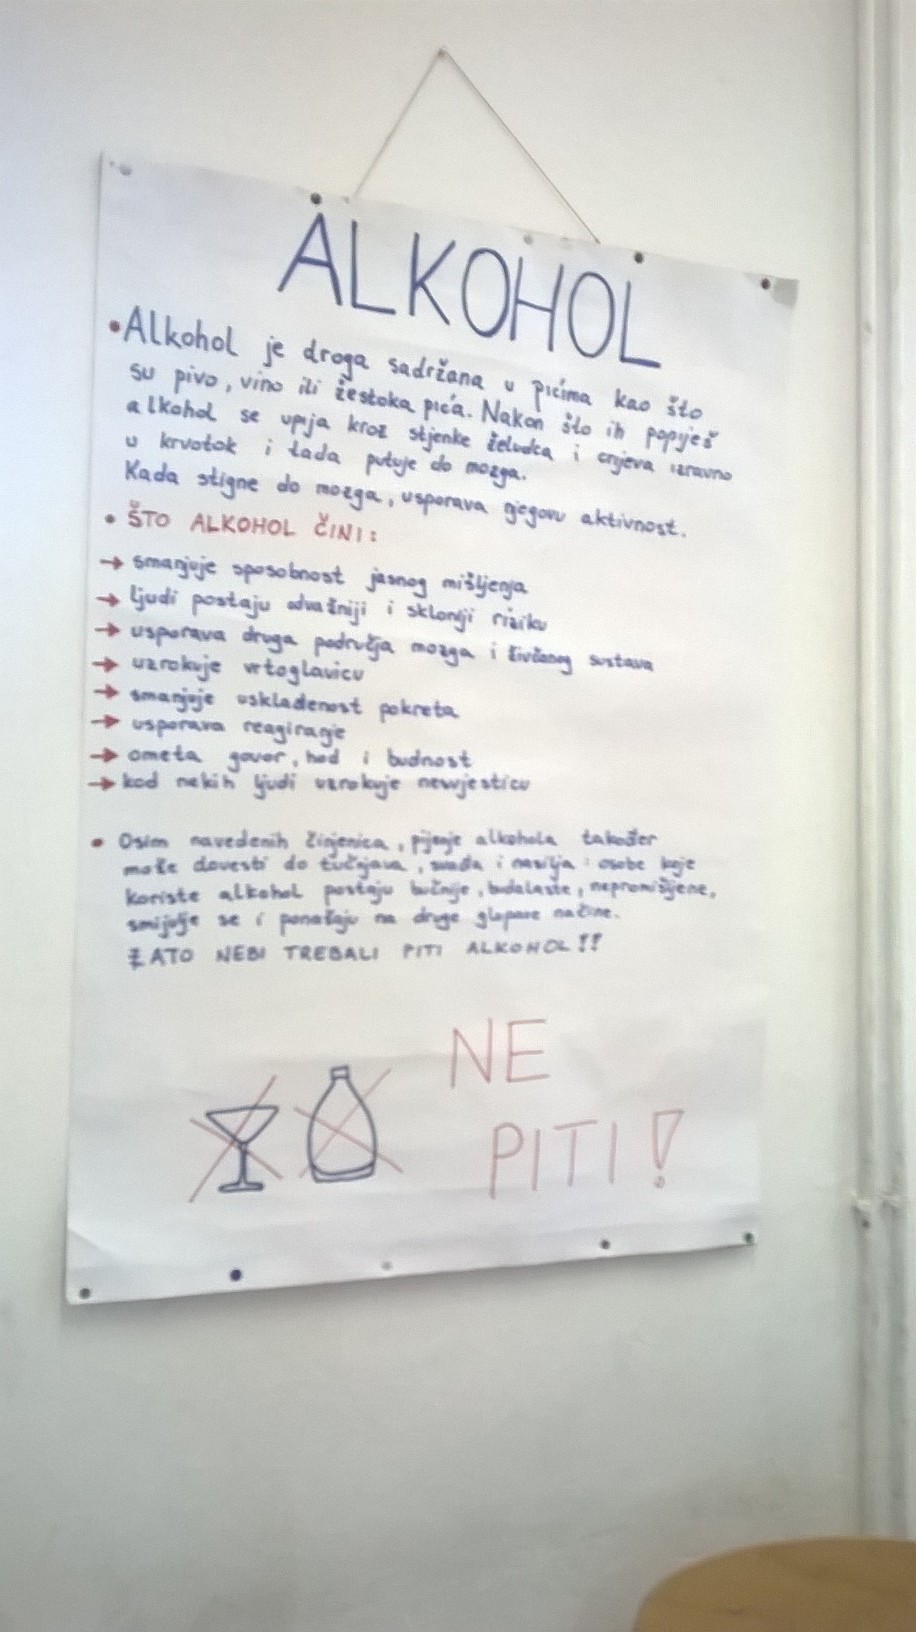 ALKOHOL
• Alkohol je droga sadržana u pićima kao što
su pivo, vino ili žestoka pića. Nakon što ih popiješ
alkohol se upija kroz stjenke želudca i crijeva izravno
u krvotok i tada putuje do mozga.
Kada stigne do mozga, usporava njegovu aktivnost.
• ŠTO ALKOHOL ČINI:
→ smanjuje sposobnost jasnog mišljenja
→ ljudi postaju odvažniji i skloniji riziku
→ usporava druga područja mozga i živčanog sustava
→ uzrokuje vrtoglavicu
→ smanjuje usklađenost pokreta
→ usporava reagiranje
→ ometa govor, hod i budnost
→ kod nekih ljudi uzrokuje nesvjesticu
• Osim navedenih činjenica, pijenje alkohola također
može dovesti do tučnjava, svađa i nasilja: osobe koje
koriste alkohol postaju bučnije, budalaste, nepromišljene,
smijulje se i ponašaju na druge glupave načine.
ZATO NEBI TREBALI PITI ALKOHOL!!
NE
PITI!